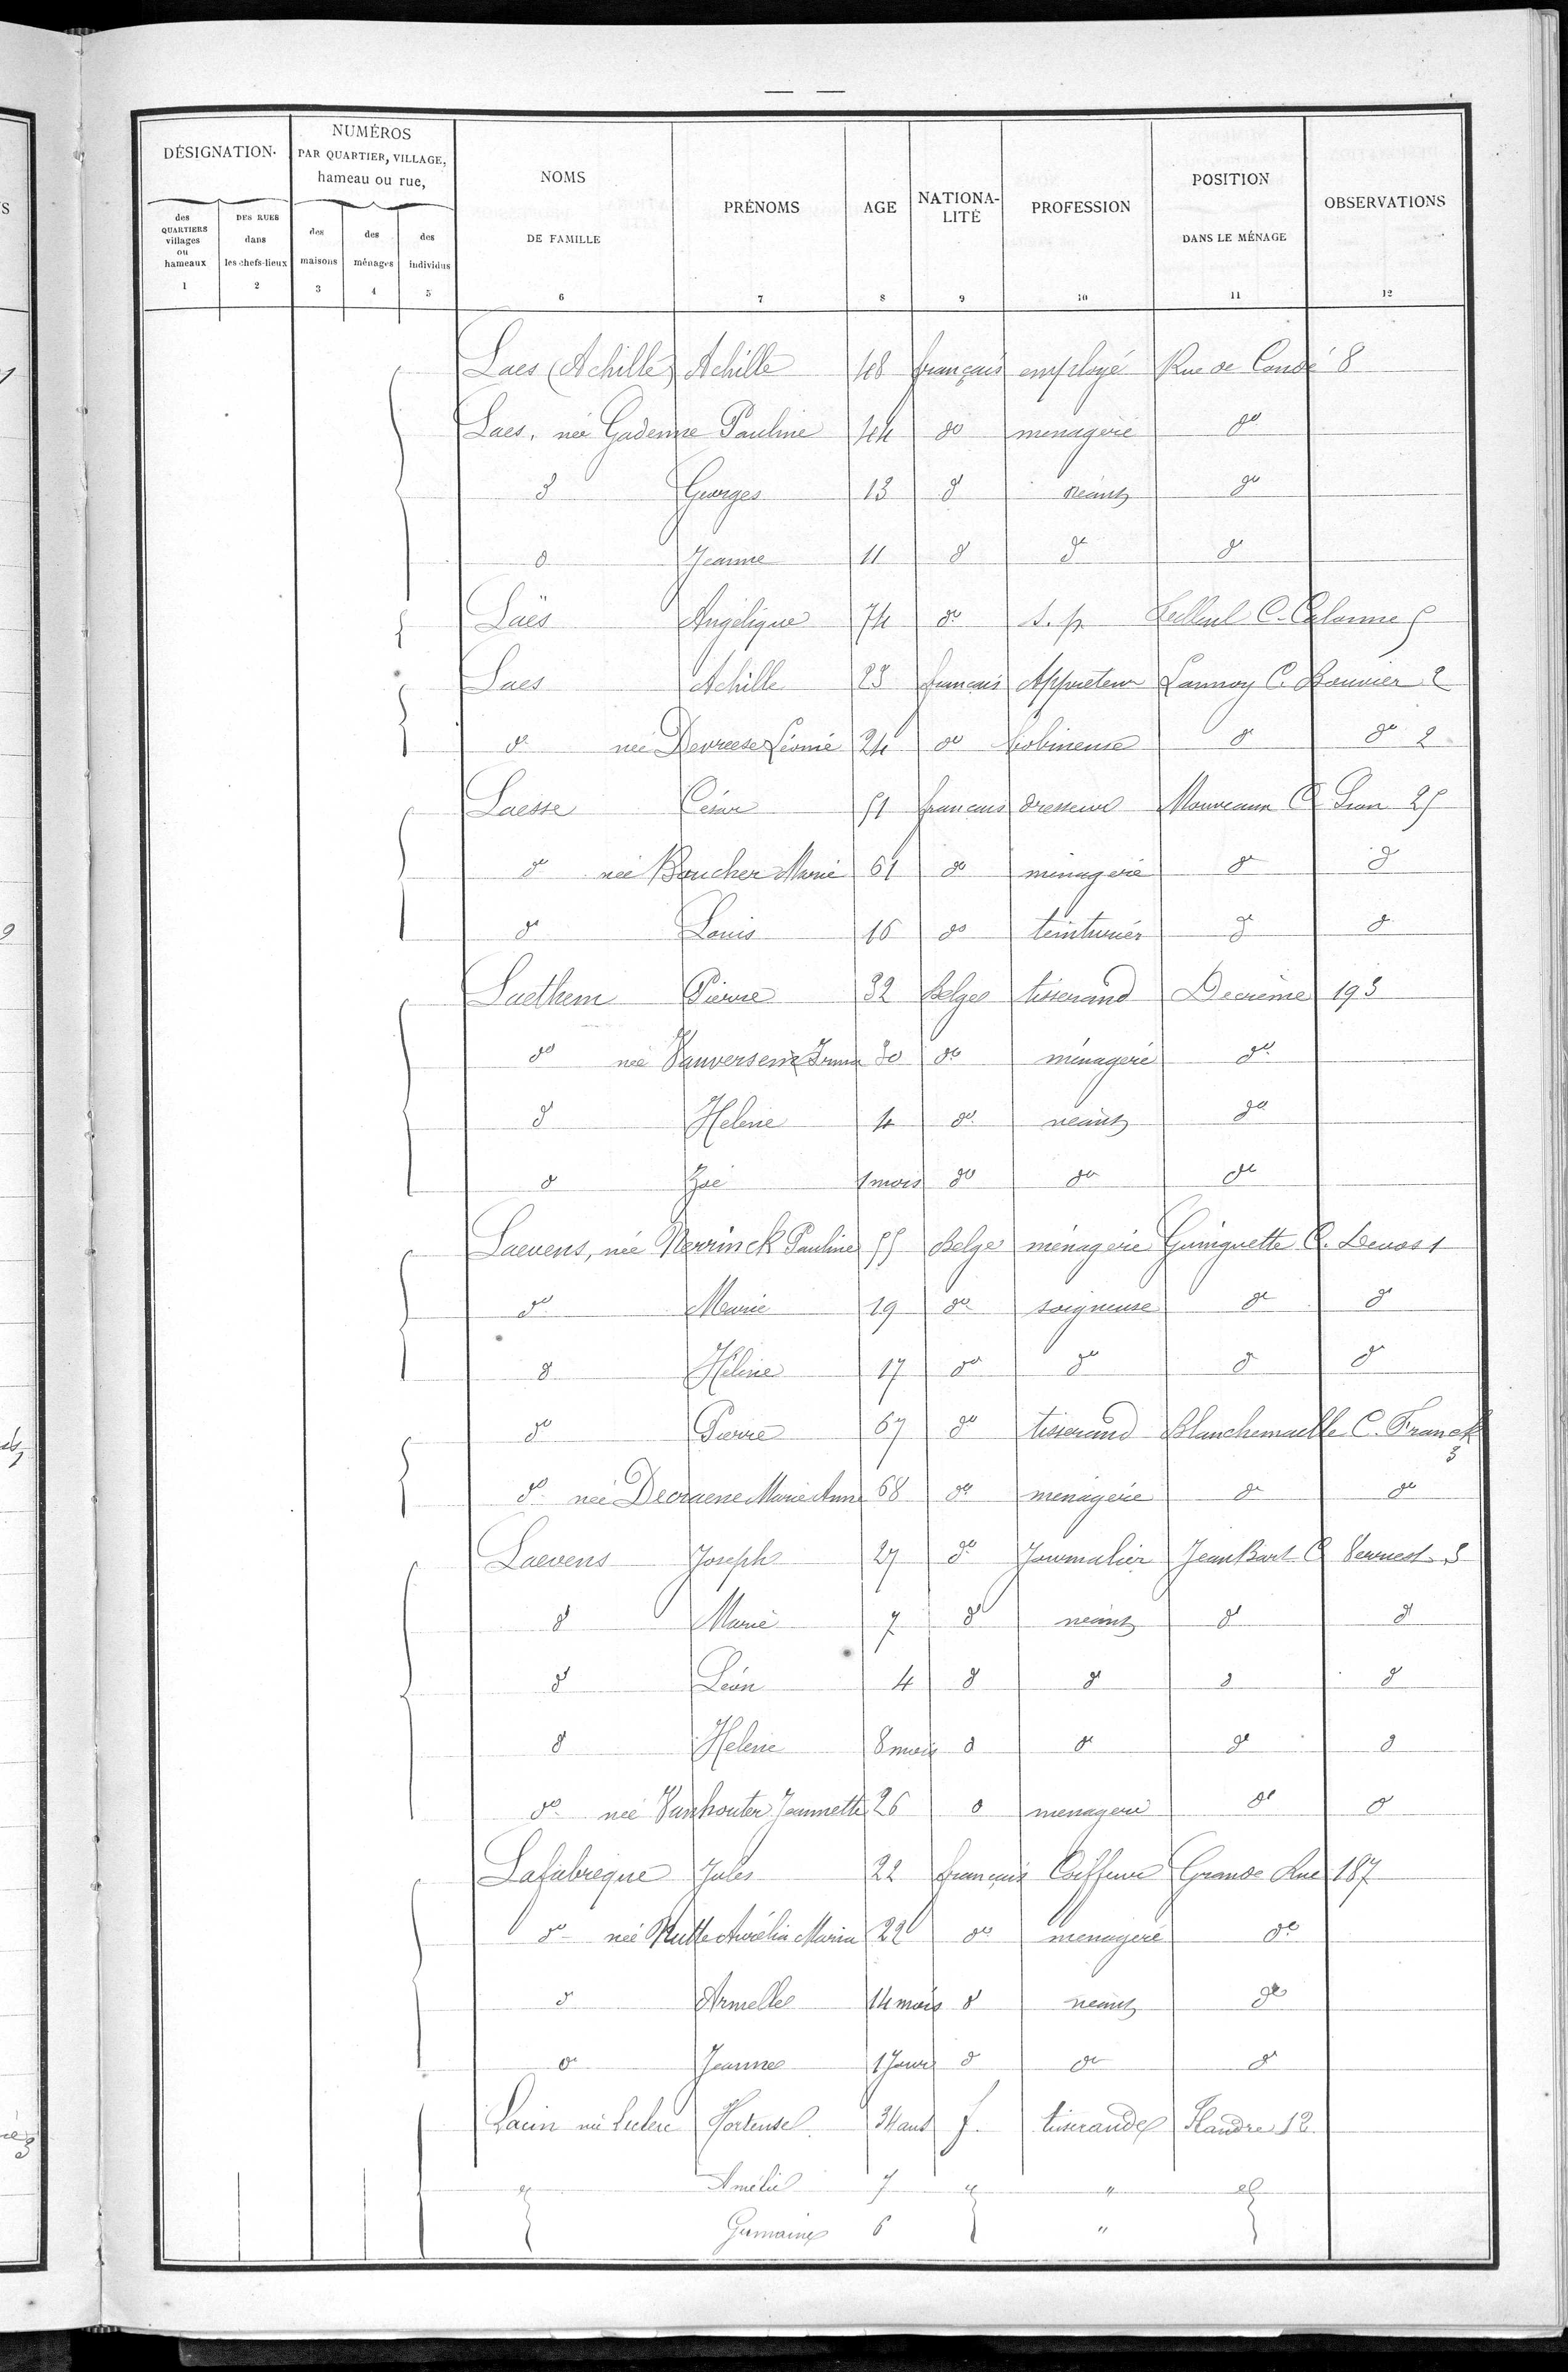 — —
DÉSIGNATION.
NUMÉROS
PAR QUARTIER, VILLAGE,
hameau ou rue,
des QUARTIERS villages ou hameaux 1
DES RUES dans les chefs-lieux 2
des maisons 3
des ménages 4
des individus 5
NOMS DE FAMILLE 6
PRÉNOMS 7
AGE 8
NATIONA-LITÉ 9
PROFESSION 10
POSITION DANS LE MÉNAGE 11
OBSERVATIONS 12
Laes (Achille) Achille 48 français employé Rue de Condé 8
Laes, née Gadenne Pauline 44 do menagère do
do Georges 13 do néant do
do Jeanne 11 do do do
Laës Angélique 74 do s.p. C. Calonne 5
Laes Achille 23 français Appreteur Lannoy C. Bouvier 2
do née Devreese Léonie 24 do bobineuse do do 2
Laesse César 51 français dresseur Mouveaux C 25
do née Boucher Marie 61 do ménagère do do
do Louis 16 do teinturier do do
Laethem Pierre 32 Belge tisserand Decrême 193
do née Irma 30 do ménagère do
do Helene 4 do néant do
do Zoé 1 mois do do do
Laevens, née Nerrinck Pauline 55 Belge ménagère Guinguette C. Devos 1
do Marie 19 do soigneuse do do
do Hélène 17 do do do do
do Pierre 67 do tisserand Blanchemaille C. Franck 3
do née Decraene Marie Anne 68 do menagère do do
Laevens Joseph 27 do Journalier Jean Bart C 3
do Marie 7 do néant do do
do Léon 4 do do do do
do Helene 8 mois do do do do
do née Vanhouter Jeannette 26 do menagere do do
Lafabregue Jules 22 français Coiffeur Grande Rue 187
do née Aurélia Maria 22 do menagère do
do Armelle 14 mois do néant do
do Jeanne 1 Jour do do do
Lain née Leclerc Hortense 34 ans f. tisserande Flandre 12
" Amélie 7 " " "
Germaine 6 "